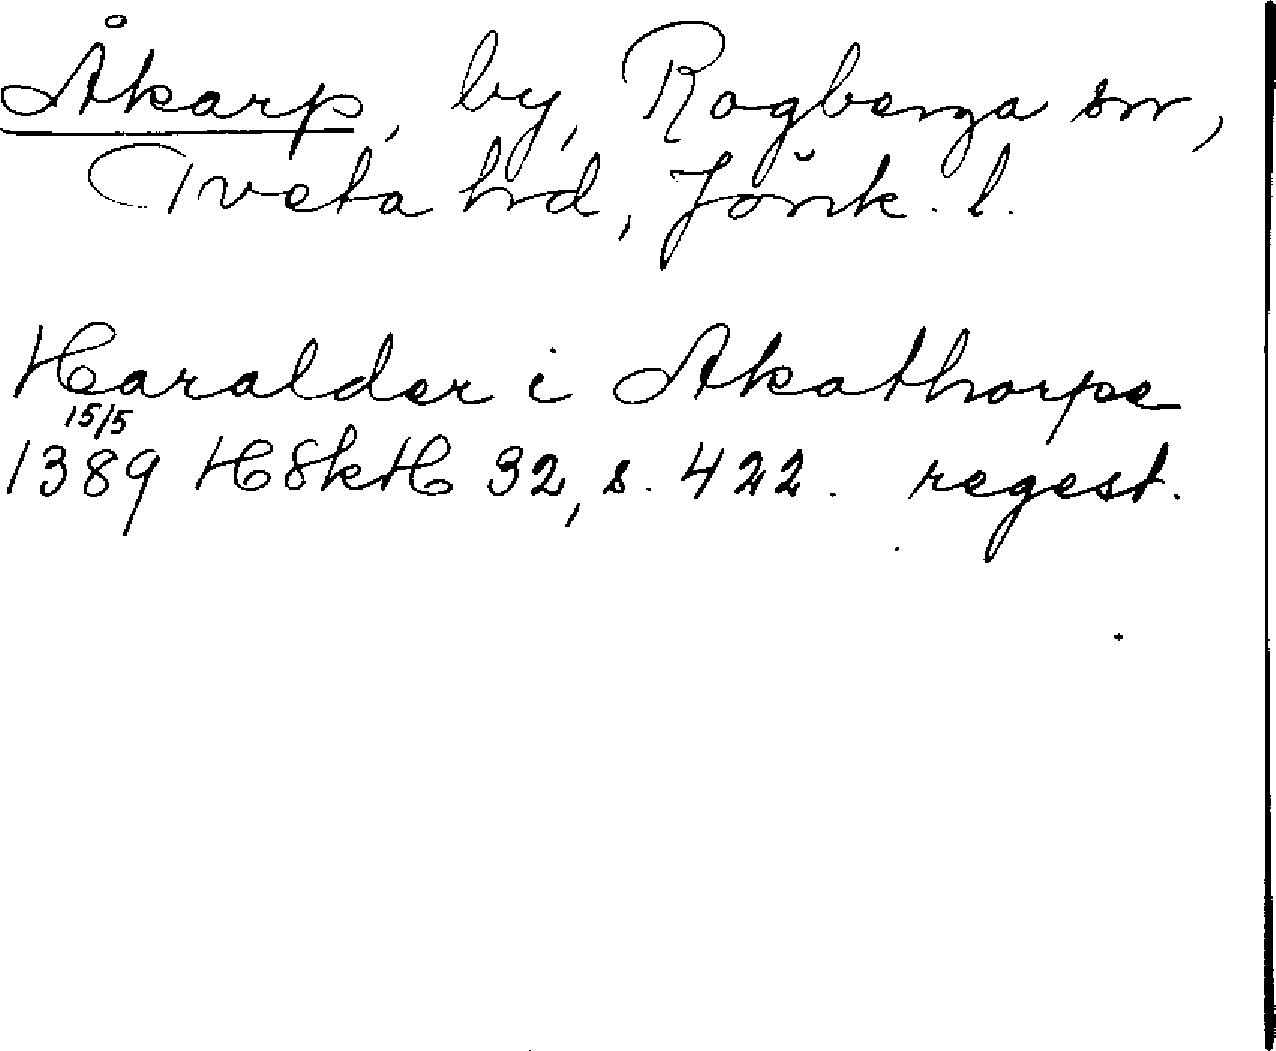 Åkarp, by, Rogberga sn,
Tveta hd, Jönk. l.
Haralder i Akathorpe
15/5
1389 HSkH 32, s. 422. regest.